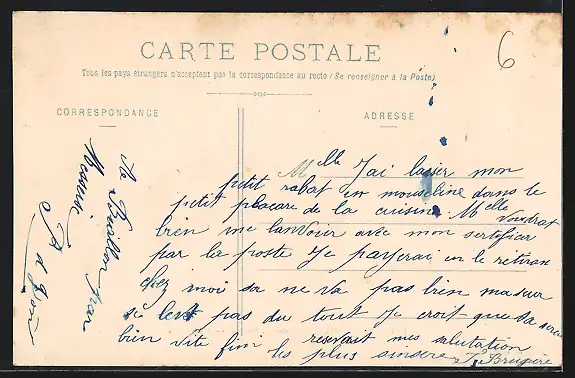 6
CARTE POSTALE
Tous les pays étrangers n'acceptent pas la correspondance au recto (Se renseigner à la Poste)
CORRESPONDANCE
ADRESSE
Melle J'ai laiser mon
petit rabat en mouseline dans le
petit placare de la cuisine Melle Voudrat
bien me l'anvoier avec mon sertificat
par la poste Je payerai en le retiran
chez moi sa ne va pas bien ma sœur
se leve pas du tout Je croit que sa sera
bien vite fini resevait mes salutation
les plus sincere J. Brugère